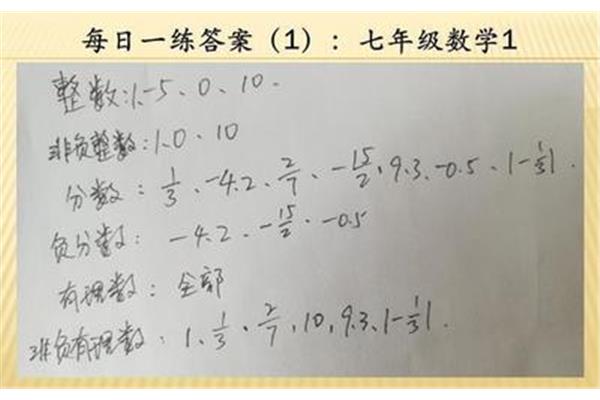 每日一练答案（1）：七年级数学1
整数：1、-5、0、10.
非负整数：1、0、10
分数：1/3、-4.2、2/7、-15/2、9.3、-0.5、|-1/3|.
负分数：-4.2、-15/2、-0.5
有理数：全部
非负有理数：1、1/3、2/7、10、9.3、|-1/3|.